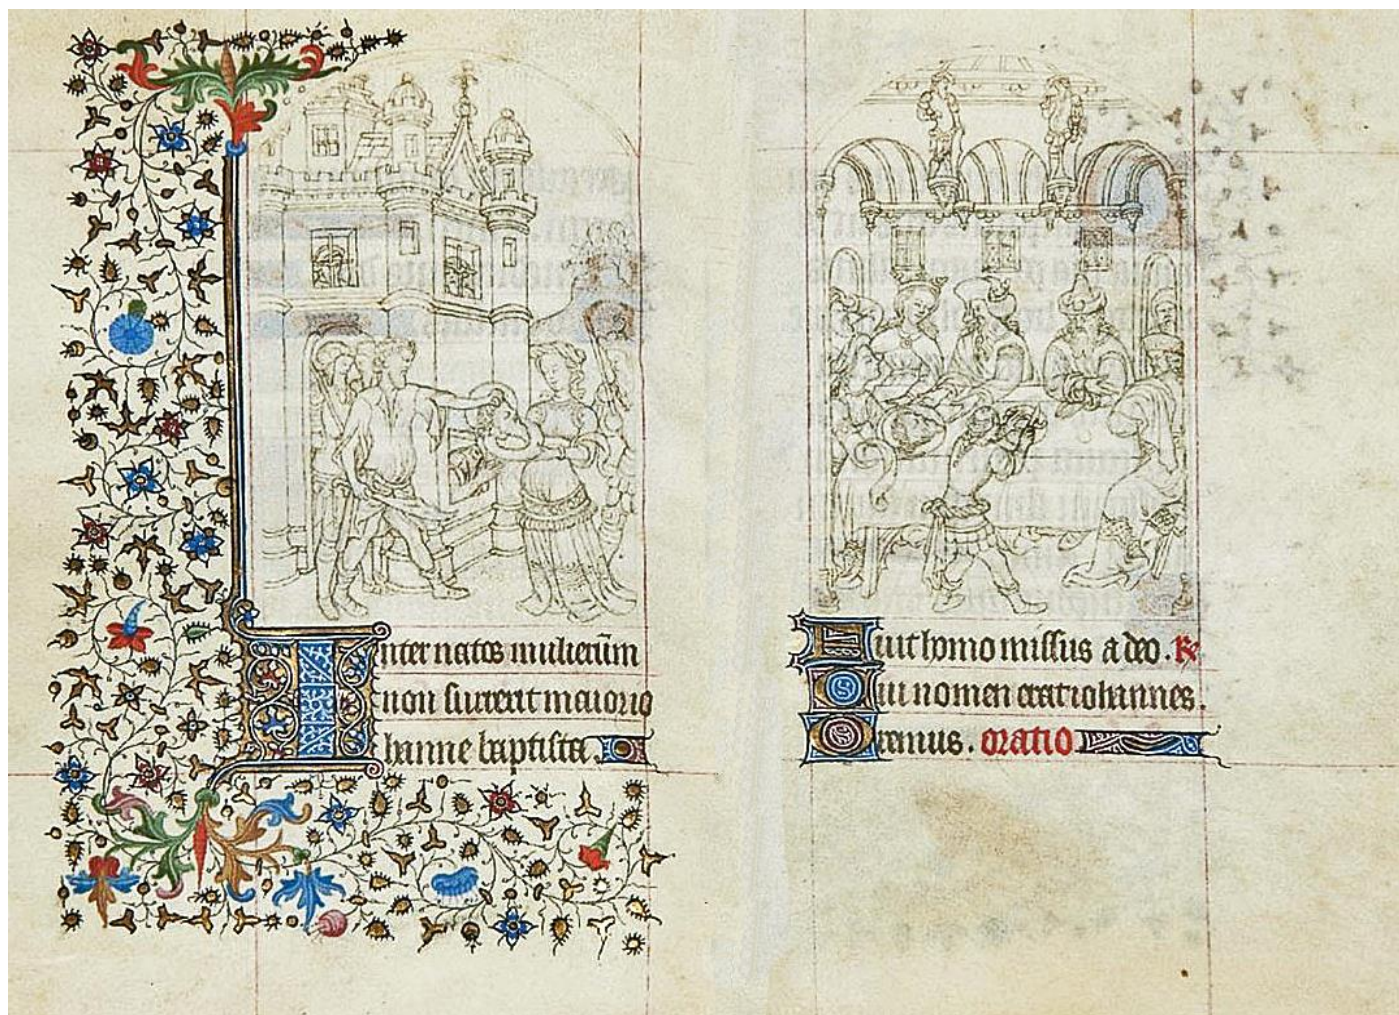 Inter natos mulierũm
non surrexit maior io
hanne baptista.
Fuit homo missus a deo. Re
Cui nomen erat iohannes.
Oremus. oratio